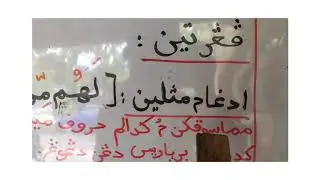 ڤڠرتين :
ادغام مثلين : [لَهُم مِّن
مماسوقكن م كدالم حروف
برباريس دڠن